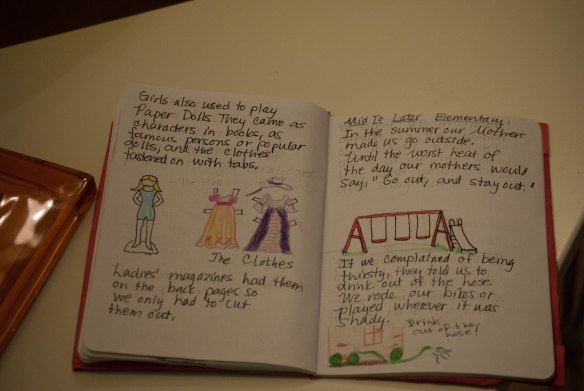 Girls also used to play
Paper Dolls They came as
characters in books, as
famous persons or popular
dolls, and the clothes
fastened on with tabs.
The doll
The Clothes
Ladies' magazines had them
on the back pages so
we only had to cut
them out.
Mid To Later Elementary:
In the summer our Mothers
made us go outside.
Until the worst heat of
the day our mothers would
say, "Go out, and stay out."
If we complained of being
thirsty, they told us to
drink out of the hose.
We rode our bikes or
played wherever it was
shady.
Drink
out of the
hose!